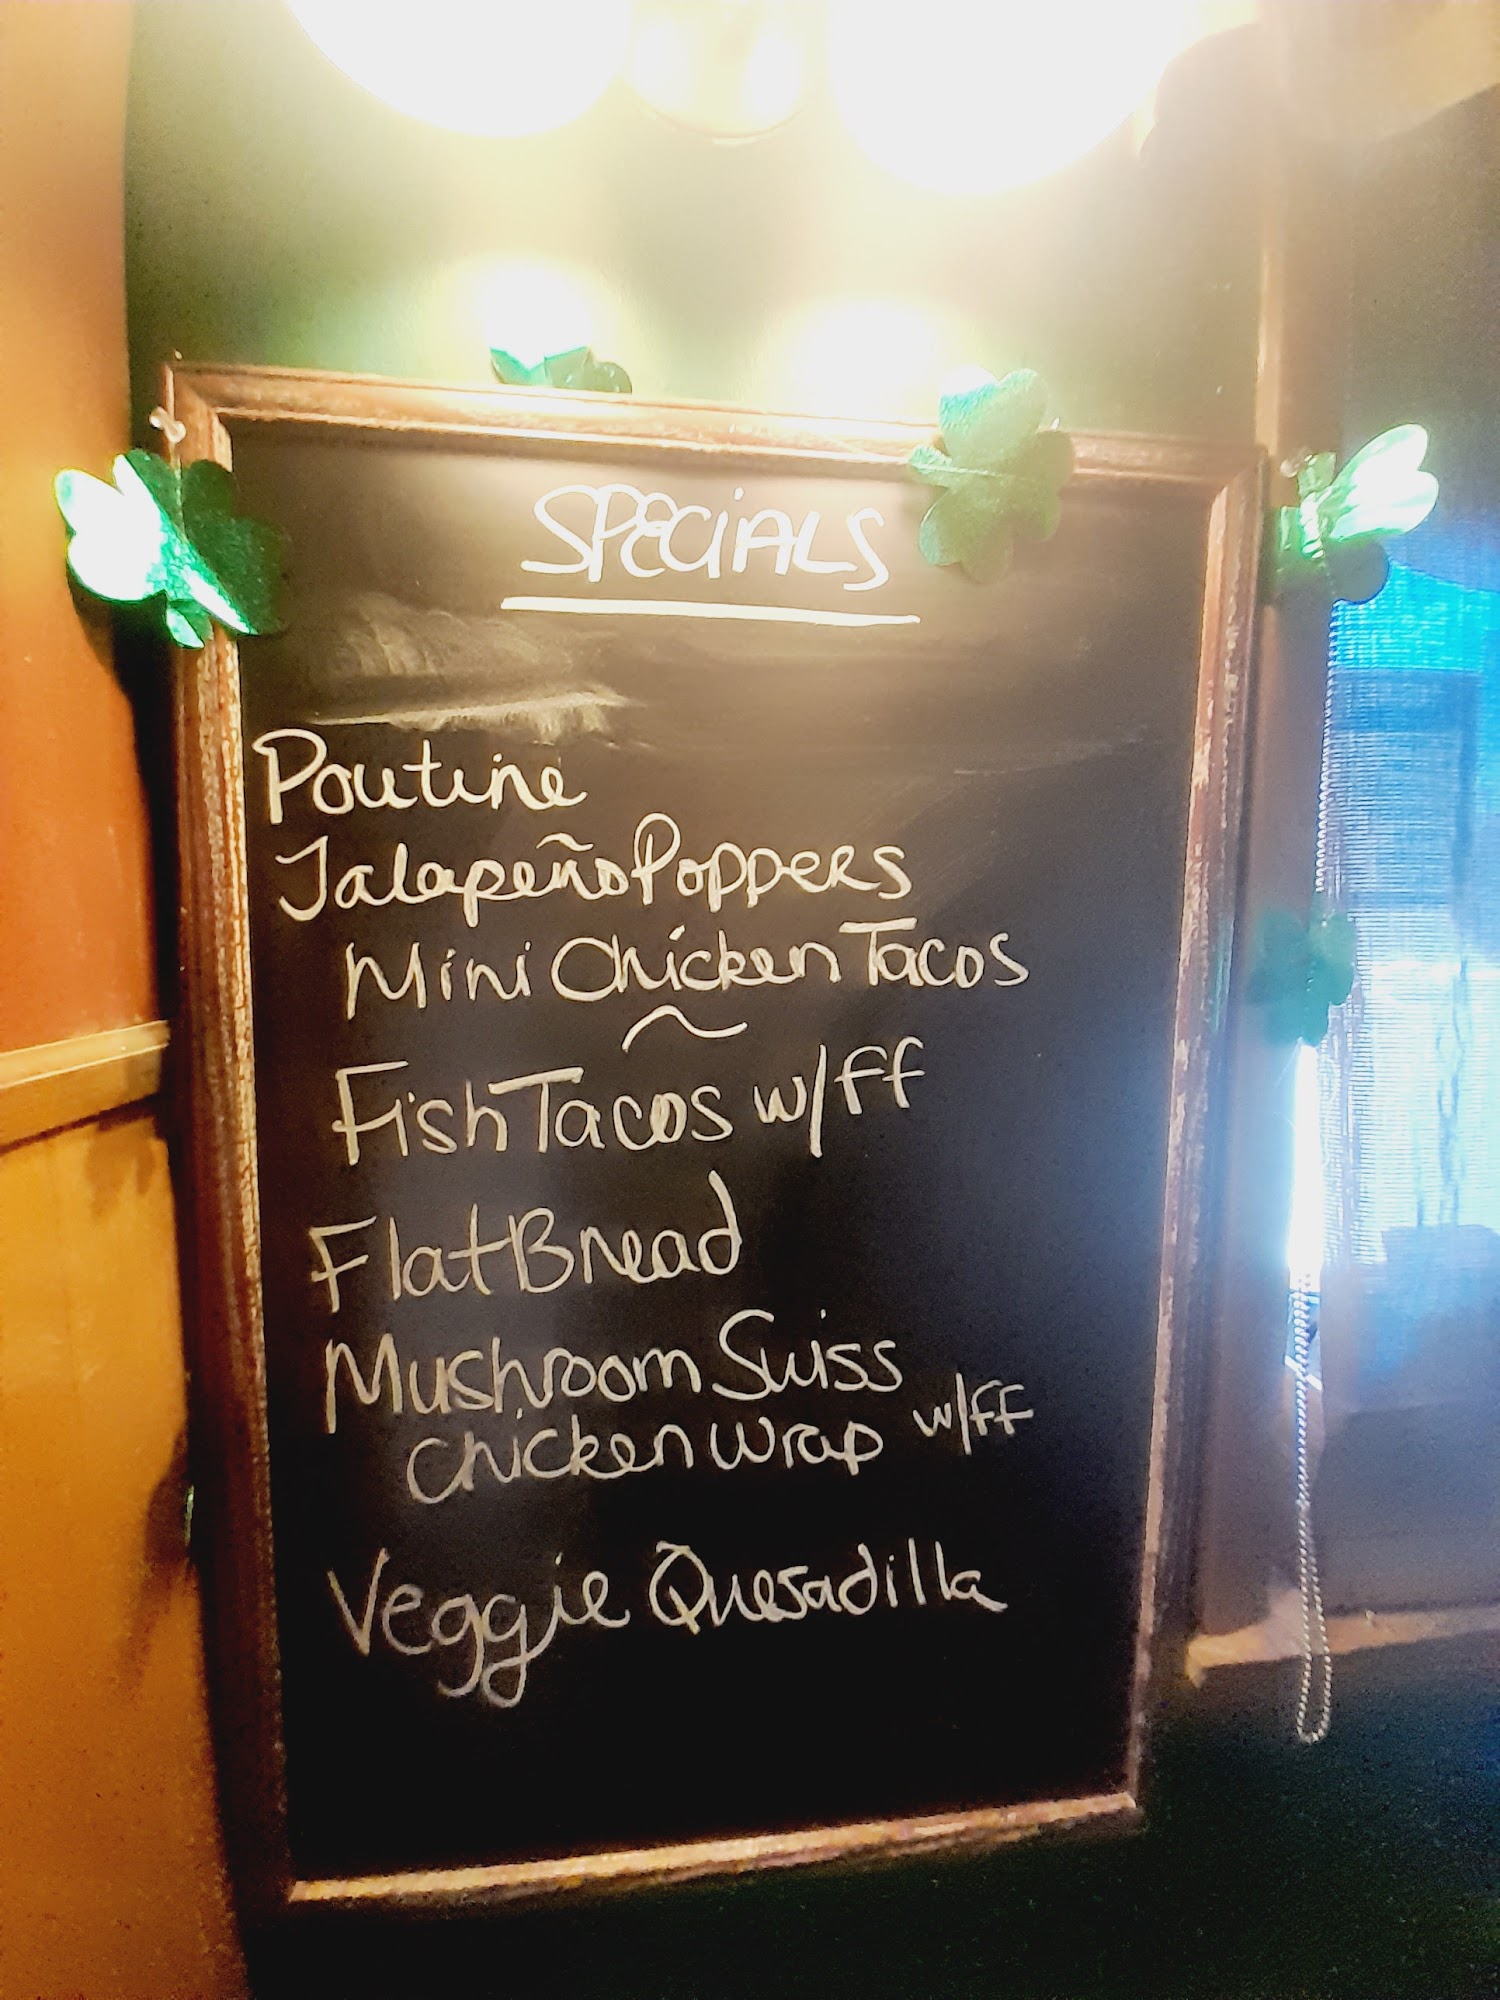 SPECiALS
Poutine
Jalapeño Poppers
Mini Chicken Tacos
~
Fish Tacos w/ff
FlatBread
Mushroom Swiss
Chicken Wrap w/ff
Veggie Quesadilla